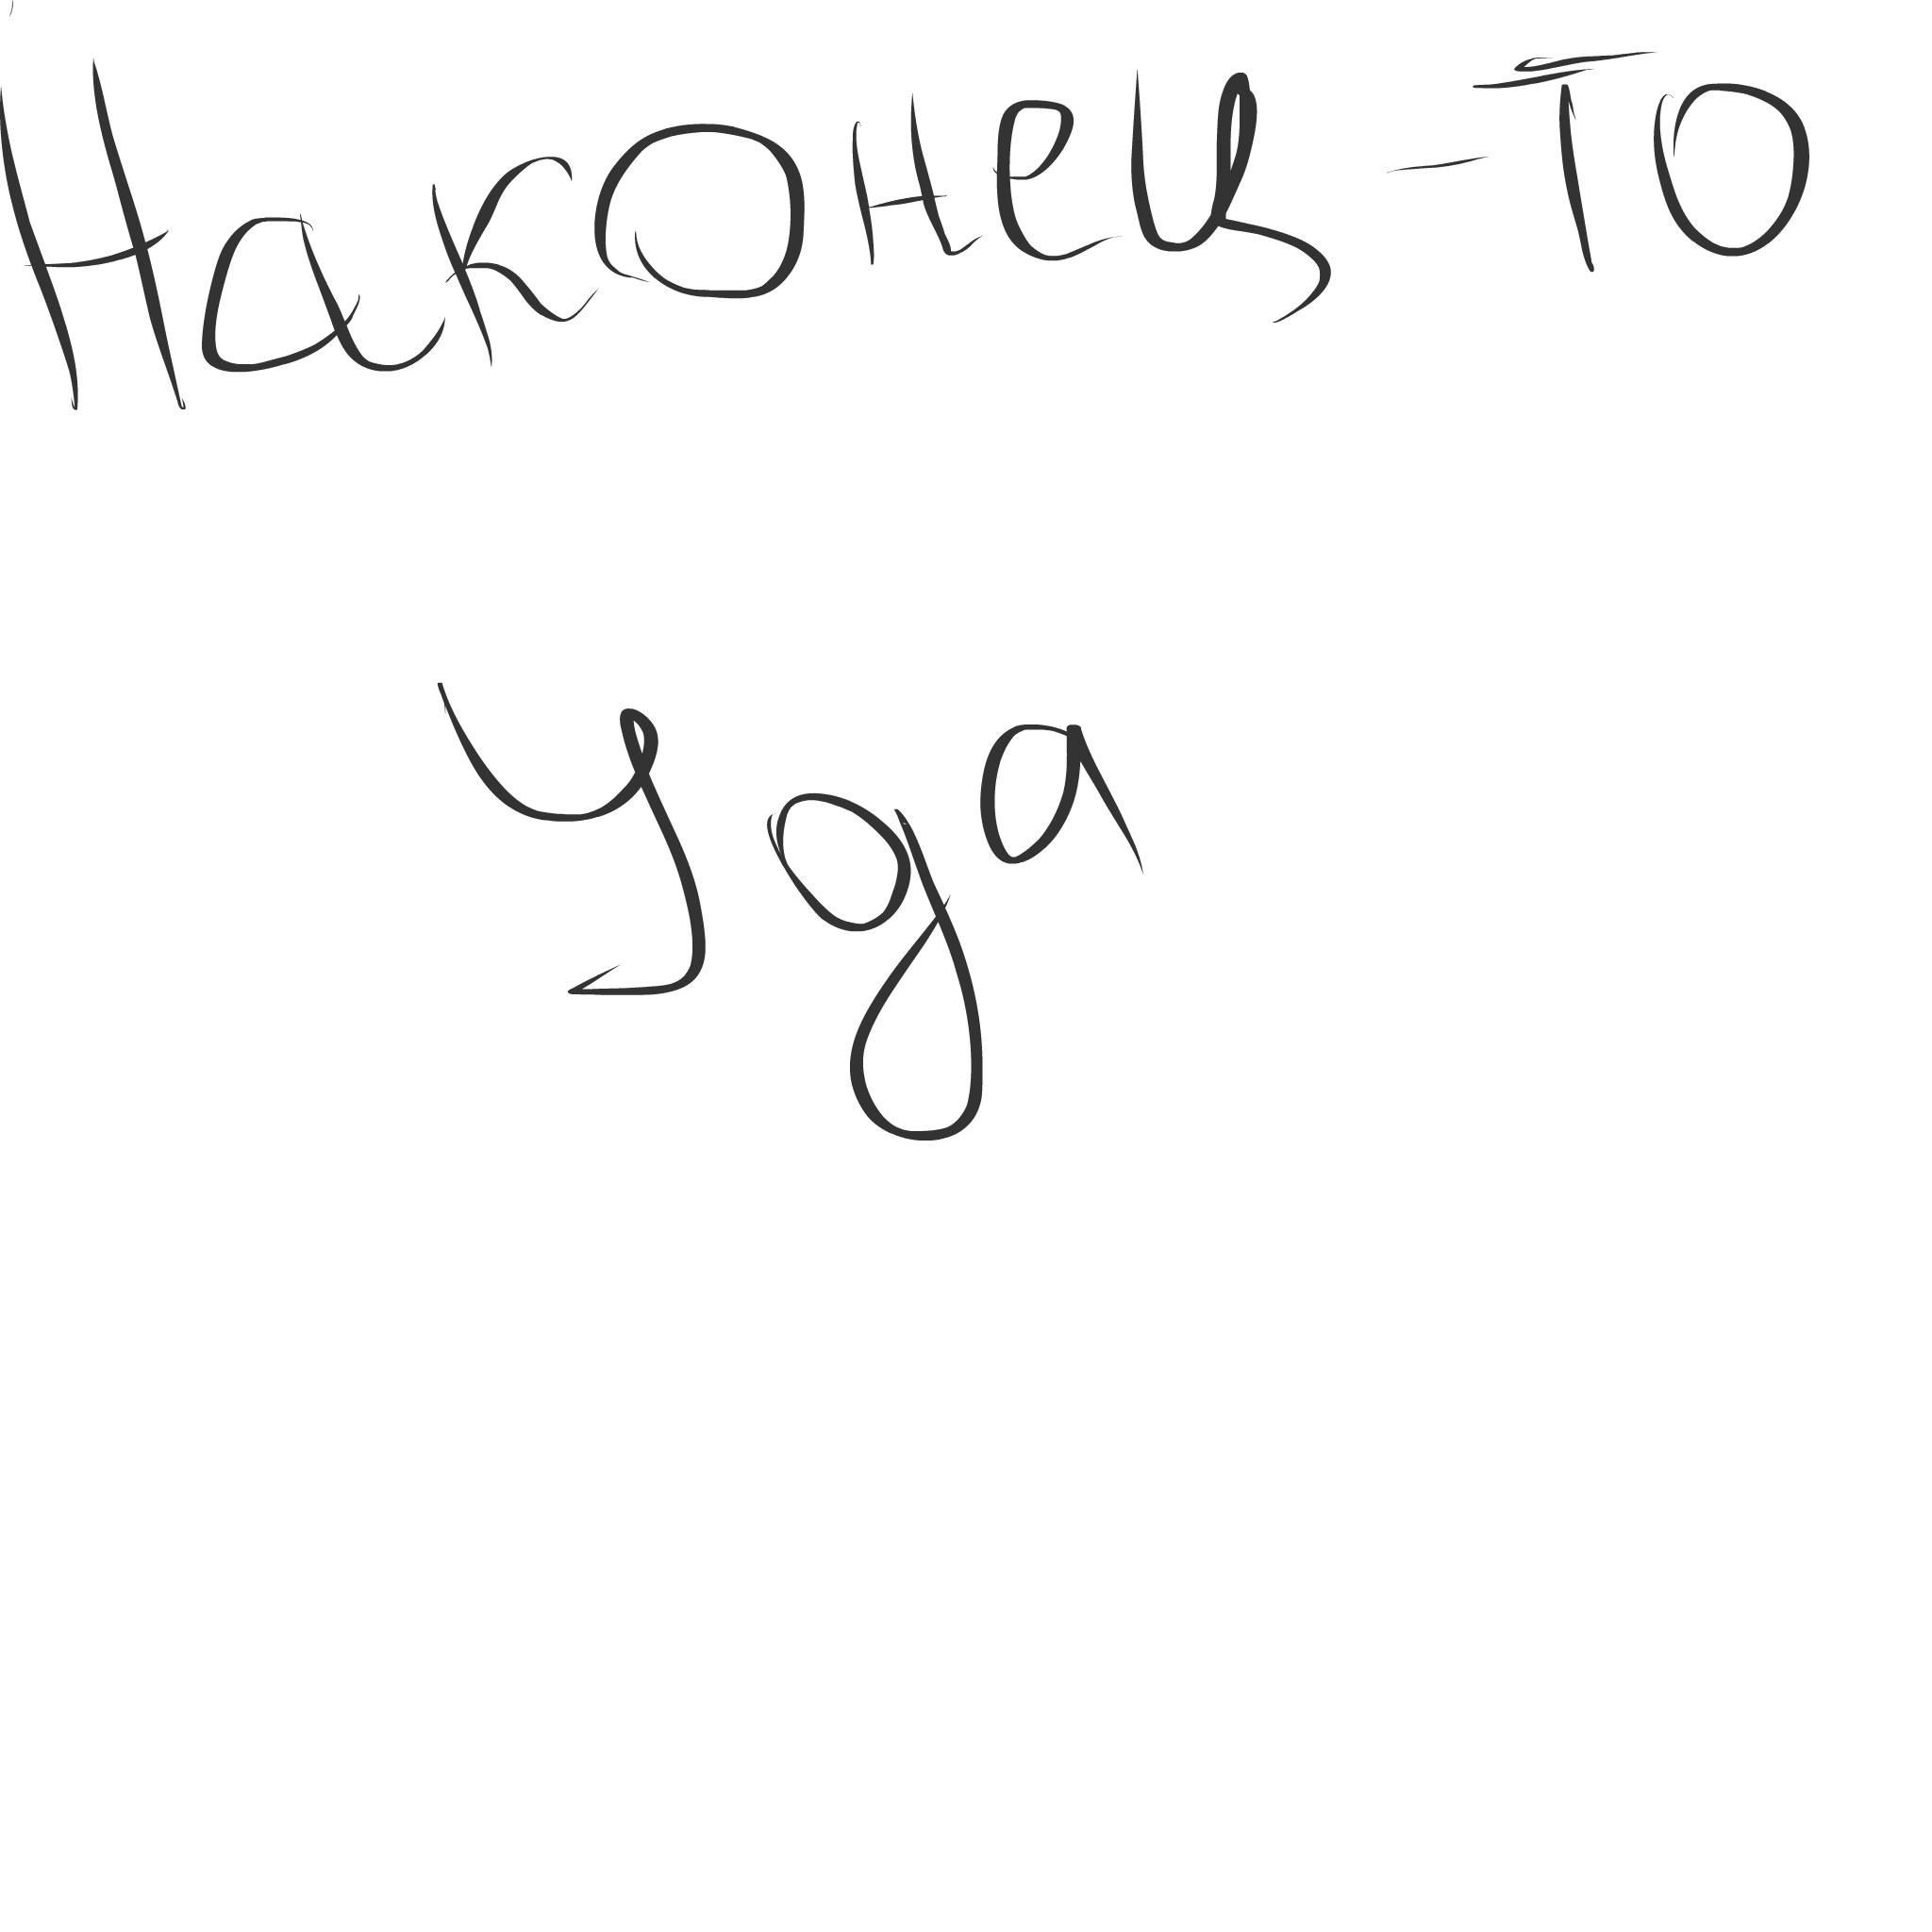 Наконец-то
Уда